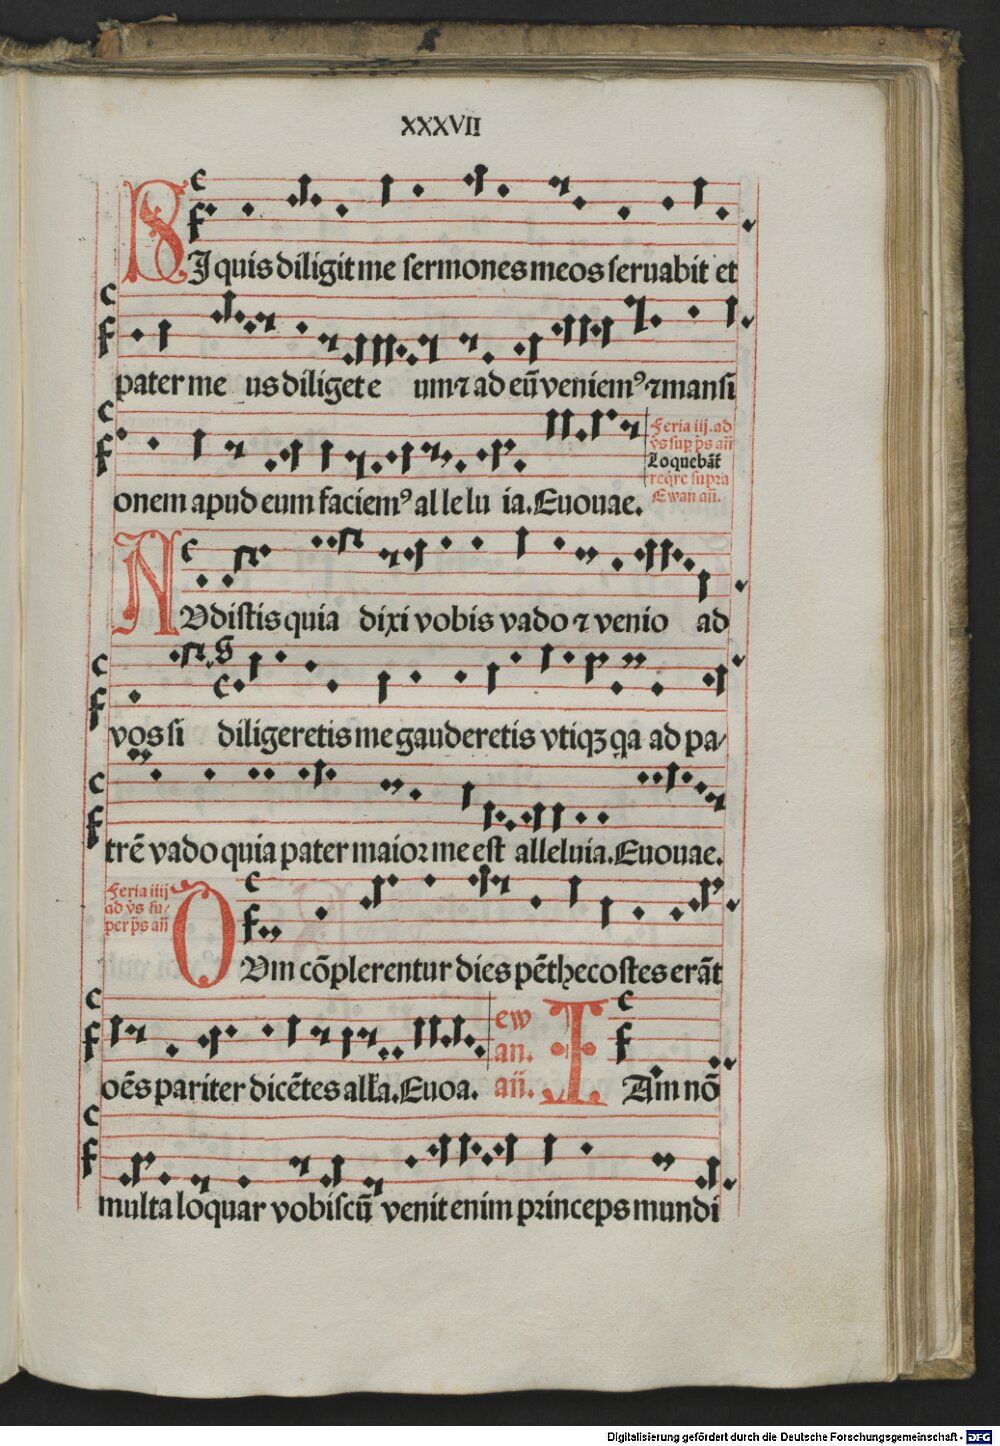 XXXVII
SJ quis diligit me sermones meos seruabit et
pater me us diliget e um ⁊ ad eū veniemꝰ ⁊ mansi
onem apud eum faciemꝰ al le lu ia. Euouae.
Feria iij. ad
Loquebāt
reqͥre supra
Ewan añ.
AVdistis quia dixi vobis vado ⁊ venio ad
vos si diligeretis me gauderetis vtiqꝫ qa ad pa/
trē vado quia pater maior me est alleluia. Euouae.
Feria iiij
ad v̄s su/
per p̄s añ
CVm cōplerentur dies pēthecostes erāt
oēs pariter dicētes alła. Euoa.
ew
an.
añ.
IAm nō
multa loquar vobiscū venit enim princeps mundi
Digitalisierung gefördert durch die Deutsche Forschungsgemeinschaft - DFG